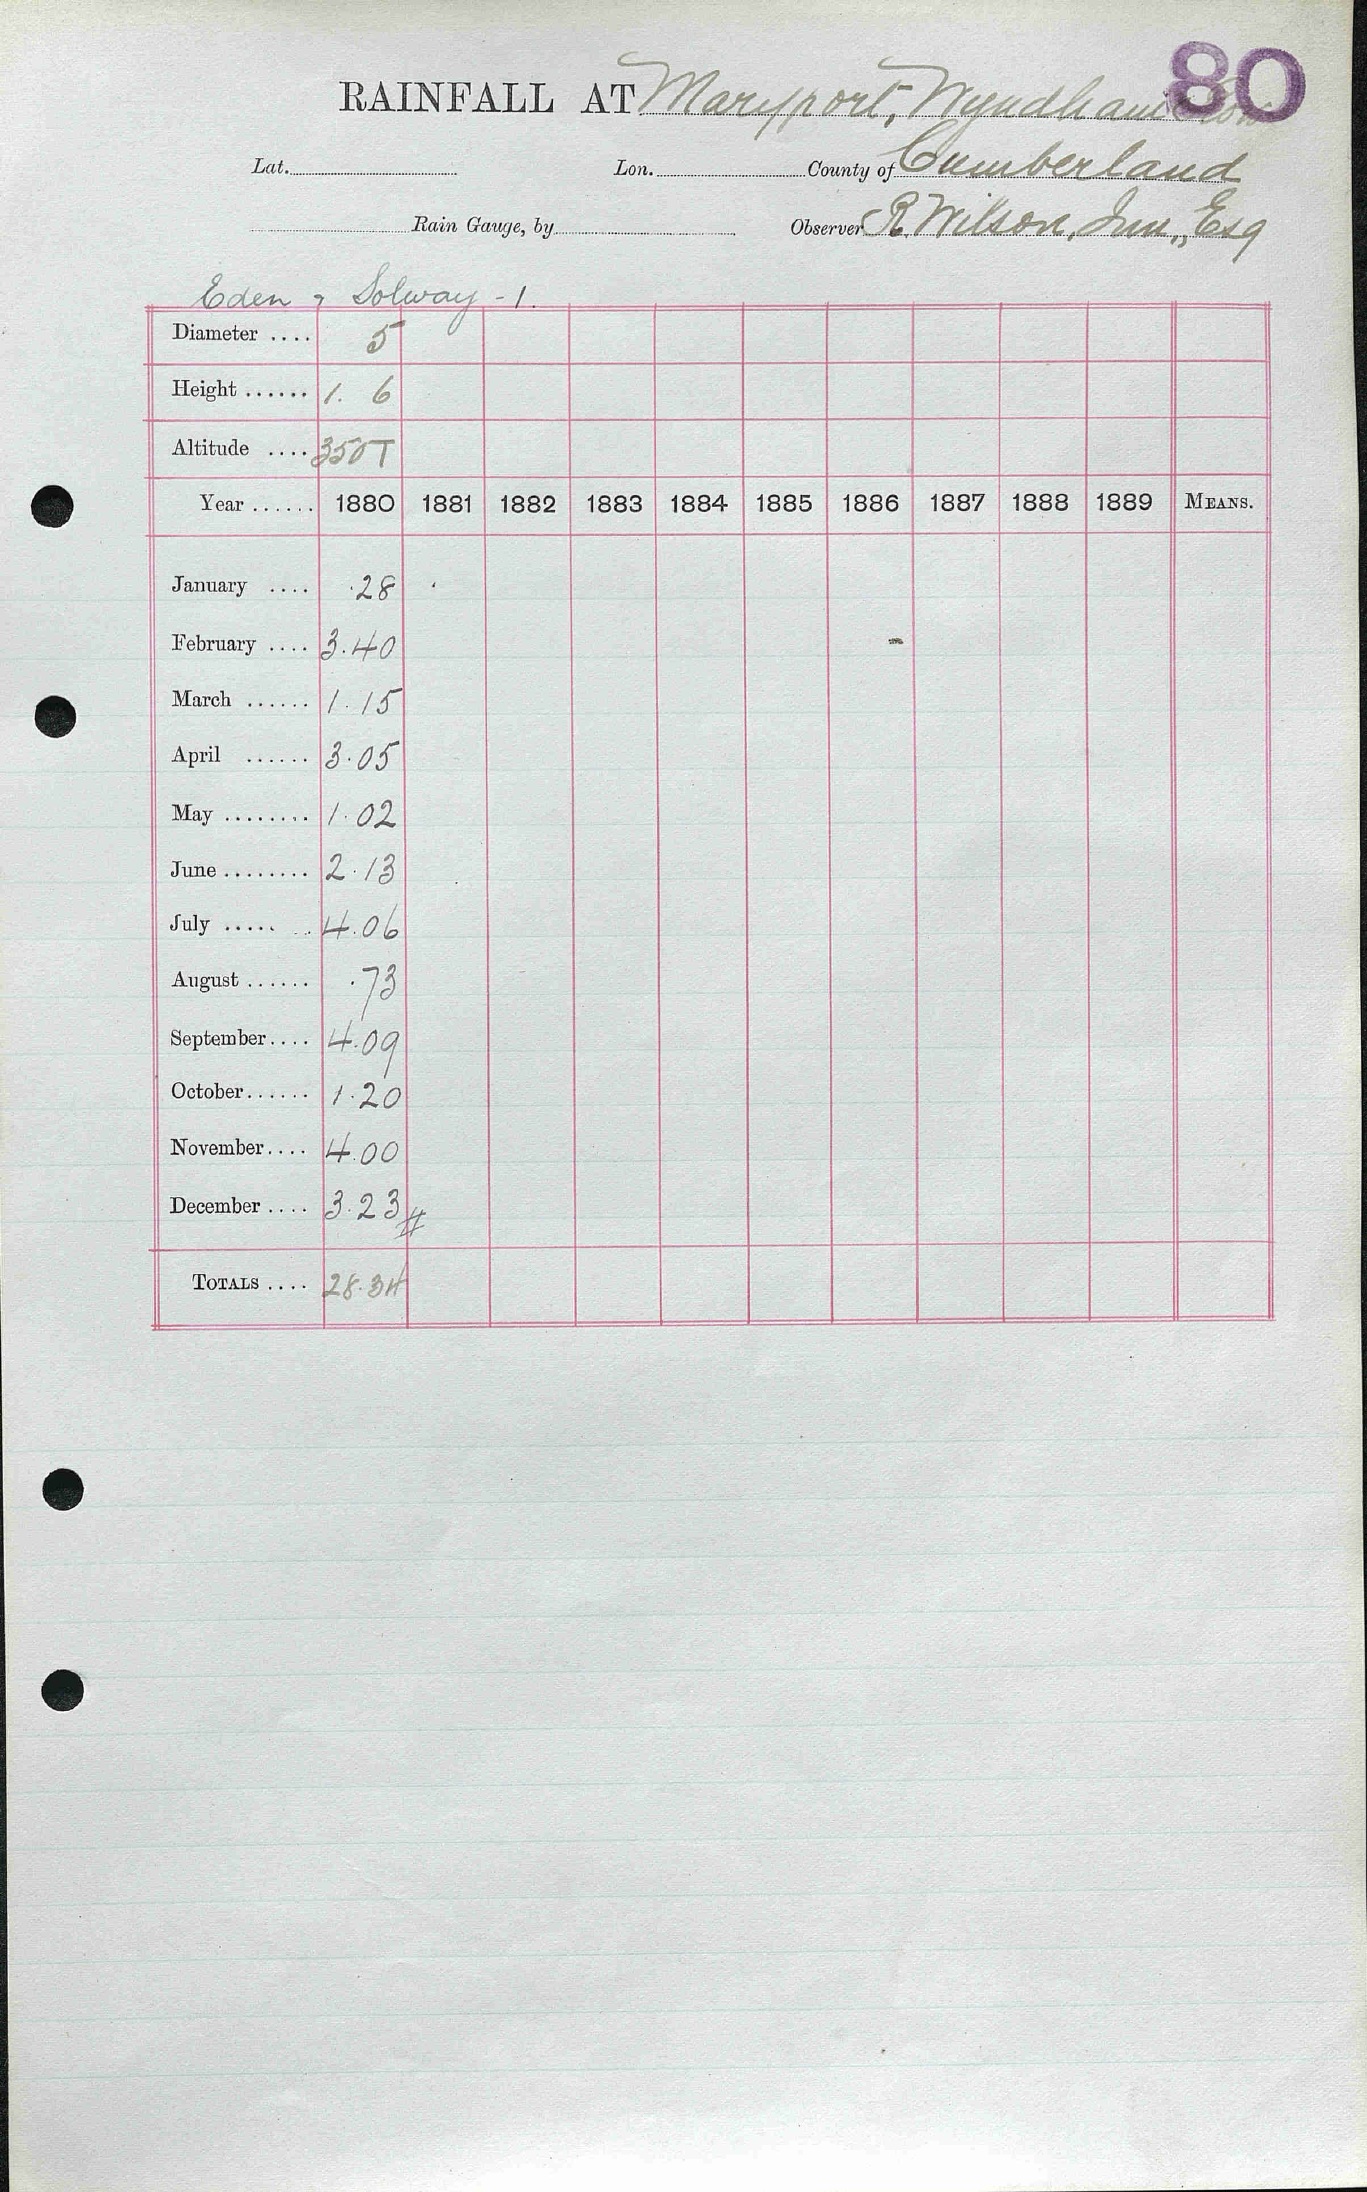 80
RAINFALL AT Maryport, Wyndham
Lat. Lon. County of Cumberland
Rain Gauge, by Observer R. Wilson, Jun., Esq
Eden & Solway - 1.
Diameter .... 5
Height ...... 1. 6
Altitude .... 350T
Year ...... 1880 1881 1882 1883 1884 1885 1886 1887 1888 1889 MEANS.
January .... .28
February .... 3.40
March ...... 1.15
April ...... 3.05
May ........ 1.02
June ........ 2.13
July ..... .. 4.06
August ...... .73
September .... 4.09
October ...... 1.20
November .... 4.00
December .... 3.23 #
TOTALS .... 28.34